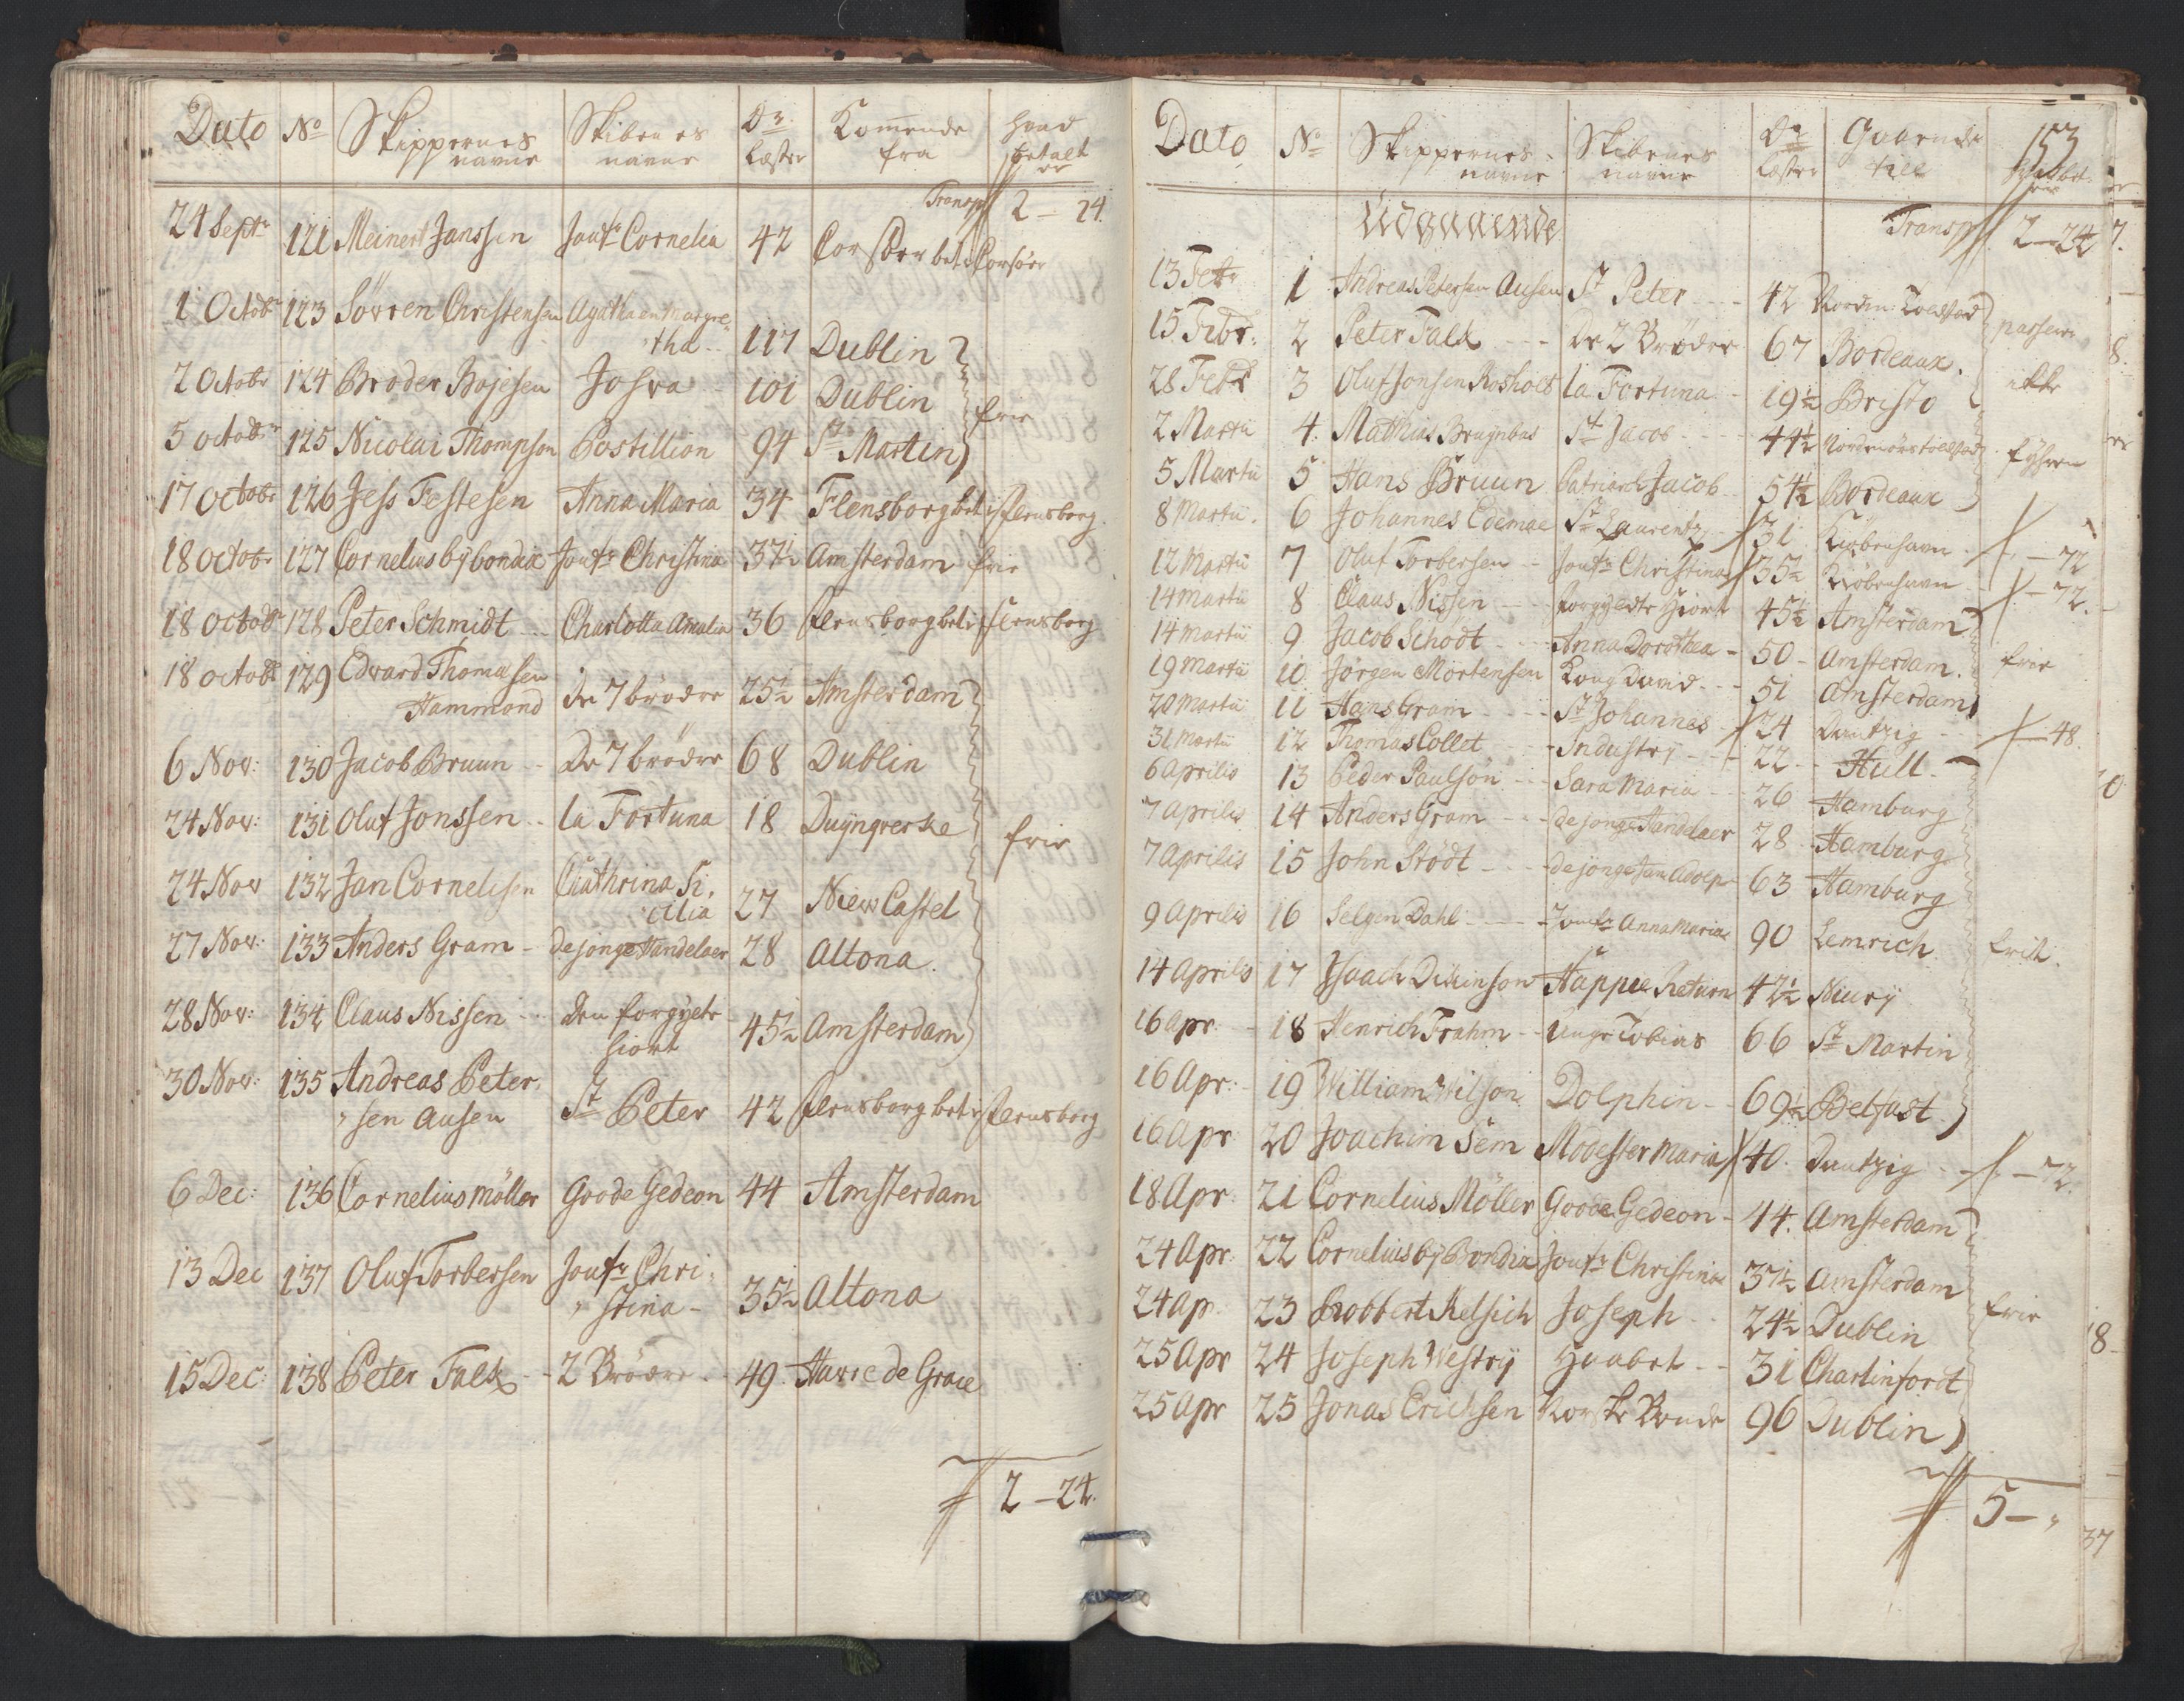 Dato No Skippernes navne Skibenes navne Dr. Læster Komende fra hvad betalt er
Transp 2 - 24.
24 Septr 121 Meinert Janssen Jonfr Cornelia 42 Corsöer bet i Corsöer
1 Octobr 123 Sörren Christensen Agatha en Margre-
tha 117 Dublin
2 Octobr 124 Broder Bojesen Josva 101 Dublin
frie
5 octobr 125 Nicolai Thompson Postillion 94 St Martin
17 octobr 126 Jess Festesen Anna Maria 34 Flensborg bet i Flensborg
18 octobr 127 Cornelius by bondix Jonfr Christina 37½ Amsterdam frie
18 octobr 128 Peter Schmidt Charlotta Amalia 36 Flensborg bet i Flensborg
18 octobr 129 Edvard Thomassen
Hammond de 7 brödre 25½ Amsterdam
6 Nov: 130 Jacob Bruun De 7 brödre 68 Dublin
24 Nov: 131 Oluf Jonssen la Fortuna 18 Duynqverke
frie
24 Nov 132 Jan Cornelisen Cathrina Si-
cilia 27 Niew Castel
27 Nov: 133 Anders Gram de jonge Handelaer 28 Altona.
28 Nov: 134 Claus Nissen Den forgyete
Hiort 45½ Amsterdam
30 Nov: 135 Andreas Peter-
sen Ausen St Peter 42 Flensborg bet i Flensborg
6 Dec: 136 Cornelius Möller Goode Gedeon 44 Amsterdam
13 Dec 137 Oluf Torbersen Jonfr Chri-
stina 35½ Altona
15 Dec: 138 Peter Falck 2 Brödre 49 Havre de Grace
2 - 24.
153
Dato No Skippernes navne Skibenes navne Dr Læster Gaaende till
Udgaaende
Transp 2 - 24
13 Febr 1 Andreas Petersen Ausen St Peter 42 Nordm: Toldsted
15 Febr: 2 Peter Falck De 2 Brödre 67 Bordeaux.
passerer
28 Febr 3 Oluf Jonsen Rosholt la Fortuna 19½ Bristo
ikke
2 Martii 4. Mathias Bruynbas St Jacob 44½ Nordmörs toldsted
fyhren
5 Martii 5 Hans Bruun Patriarch Jacob 54½ Bordeaux
8 Martii. 6 Johannes Edemae St Laurentz 31 Kiöbenhavn - 72
12 Martii 7 Oluf Torbersen Jonfr Christina 35½ Kiöbenhavn - 72.
14 martii 8 Claus Nissen forgyldte Hiort 45½ Amsterdam
14 martii 9 Jacob Schodt Anna Dorothea 50 Amsterdam. frie
19 martii 10 Jörgen Mortensen Kong David 51 Amsterdam
20 martii 11 Hans Gram St Johannes 24 Dantzig - 48.
31 martii 12 Thomas Collet Industry 22 Hull
6 aprilis 13 Peder Paulson Sara Maria 26 Hamburg
7 aprilis 14 Anders Gram de jonge Handelaer 28 Hamburg
7 aprilis 15 John Stödt de jonge Jan Adolp 63 Hamburg
9 aprilis 16 Selgen Dahl Jomfr Anna Maria 90 Lemrich frit.
14 aprilis 17 Isaach Dikinson Happie Return 42½ Niury
16 apr: 18 Henrich Frahm Unge Tobias 66 St Martin
16 Apr: 19 William Wilson Dolphin 69½ Belfast
16 apr 20 Joachim Sem Moeffer Maria 40. Dantzig - 72.
18 Apr: 21 Cornelius Möller Goode Gedeon 44. Amsterdam
24 Apr: 22 Cornelius by Bondix Jonfr Christina 37½ Amsterdam
24 ap. 23 Robbert Kelsich Joseph 24½ Dublin frie
25 Apr 24 Joseph Westry Haabet 31 Charlinfordt
25 Apr 25 Jonas Erichsen Norske Bonde 96 Dublin
5 -